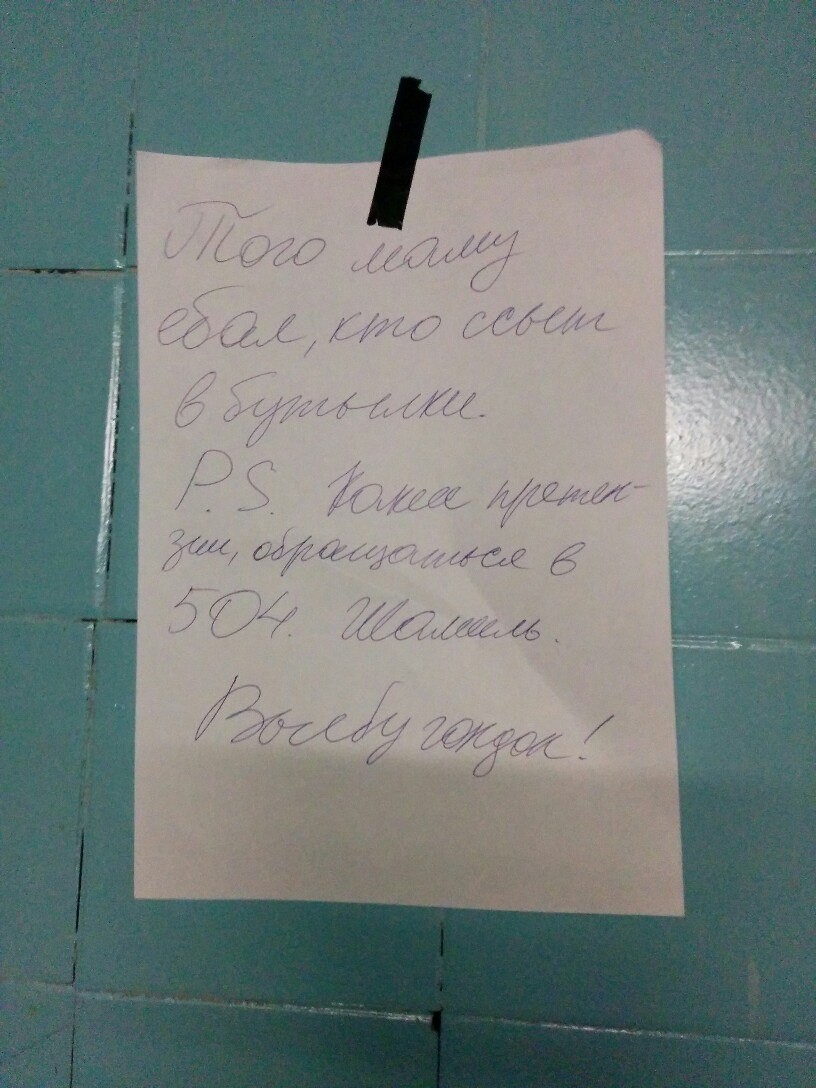 Того маму
ебал, кто ссыт
в бутылки.
P.S. Какие претен-
зии, обращаться в
504. Шамиль.
Выебу гондон!